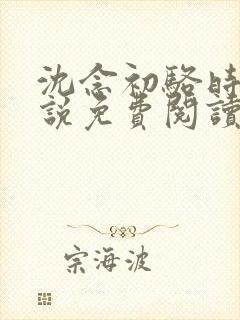 沈念初駱時
說免費閱讀
宗海波